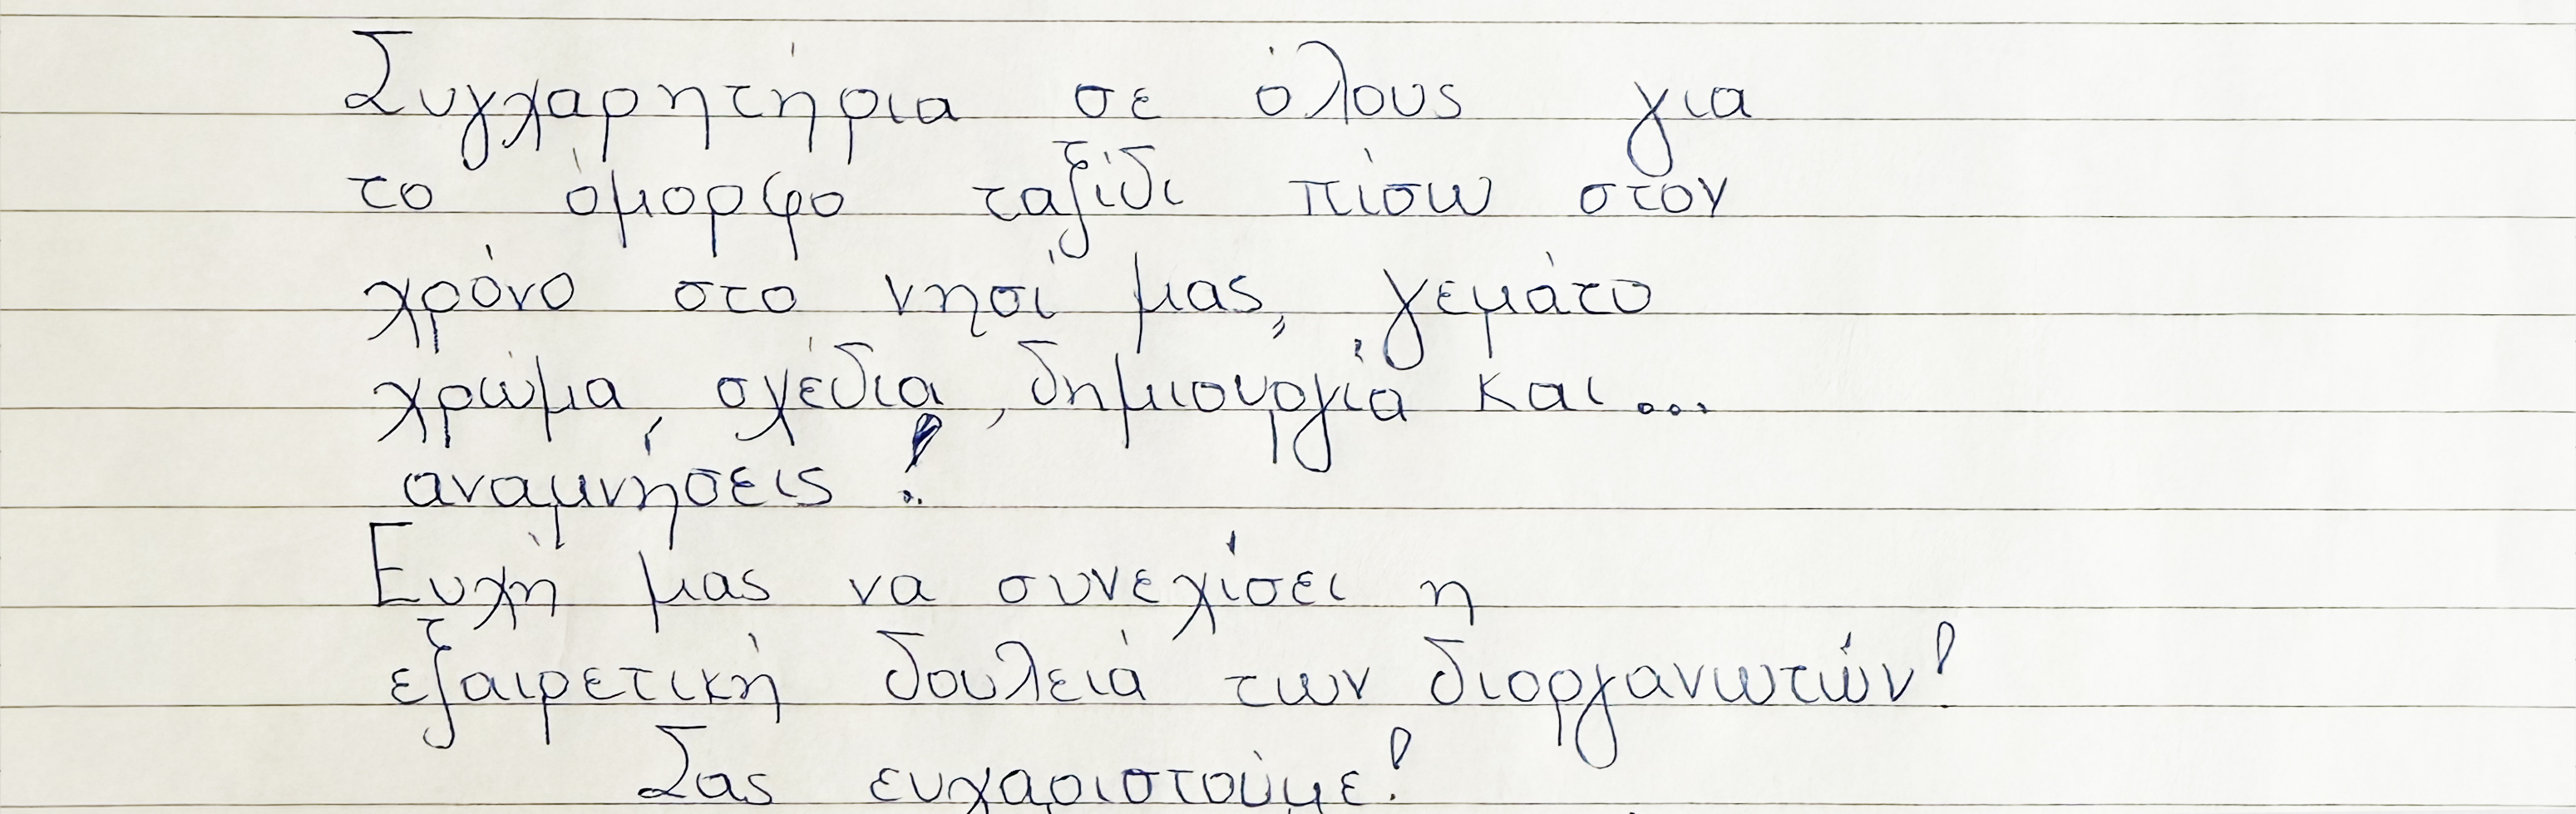 Συγχαρητήρια σε όλους για
το όμορφο ταξίδι πίσω στον
χρόνο στο νησί μας, γεμάτο
χρώμα, σχέδια, δημιουργία και...
αναμνήσεις!
Ευχή μας να συνεχίσει η
εξαιρετική δουλειά των διοργανωτών!
Σας ευχαριστούμε!